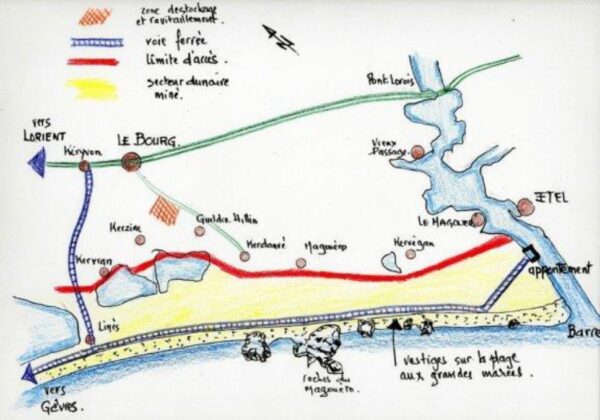 zone destockage
et ravitaillement.
voie ferrée
limite d'accès.
secteur dunaire
miné.
N
Pont Lorois
vers
LORIENT
Kéryvon
LE BOURG.
Vieux
Passage
ETEL
LE MAGOUER
Kerzine
Gueldro. Hilin
Kerdonvé
Magouéro
Kervégan
Kervran
appontement
Linès
Barre
vestiges sur la plage
aux grandes marées.
roches du
Magouéro.
vers
Gâvres.